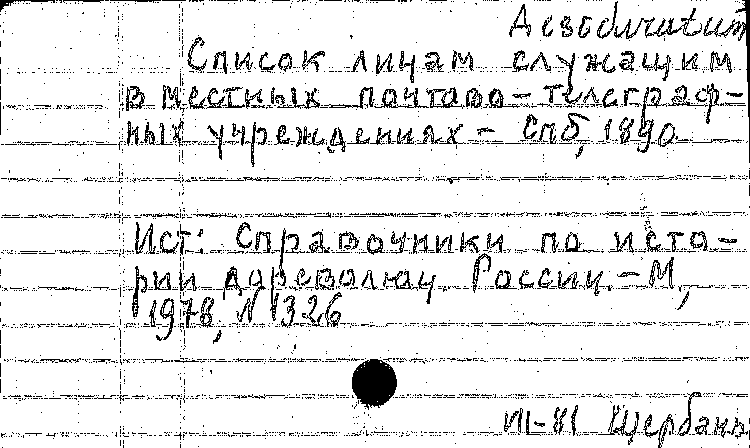 Дезобиrаtит
Список лицам служащим
в местных почтово-телеграф-
ных учреждениях - Спб, 1890
Ист: Справочники по исто-
рии дореволюц. России. - М.,
1978, N 1326
VII-81 Щербань